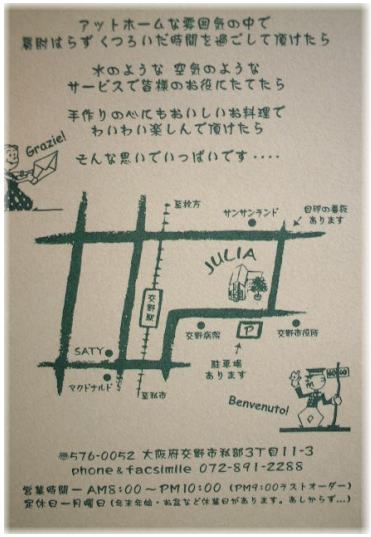 アットホームな雰囲気の中で
肩肘はらず くつろいだ時間を過ごして頂けたら
水のような 空気のような
サービスで皆様のお役にたてたら
手作りの
おいしいお料理で
わいわい楽しんで頂けたら
そんな思いでいっぱいです・・・・
Grazie!
至枚方
サンサンランド
目印の看板
あります
JULIA
交野駅
交野病院
P
交野市役所
SATY
駐車場
あります
マクドナルド
至私市
Benvenuto!
〠576-0052 大阪府交野市私部3丁目11-3
phone & facsimile 072-891-2288
営業時間ーAM8:00〜PM10:00 (PM9:00ラストオーダー)
定休日ー月曜日(年末年始・お盆など休業日があります。あしからず...)